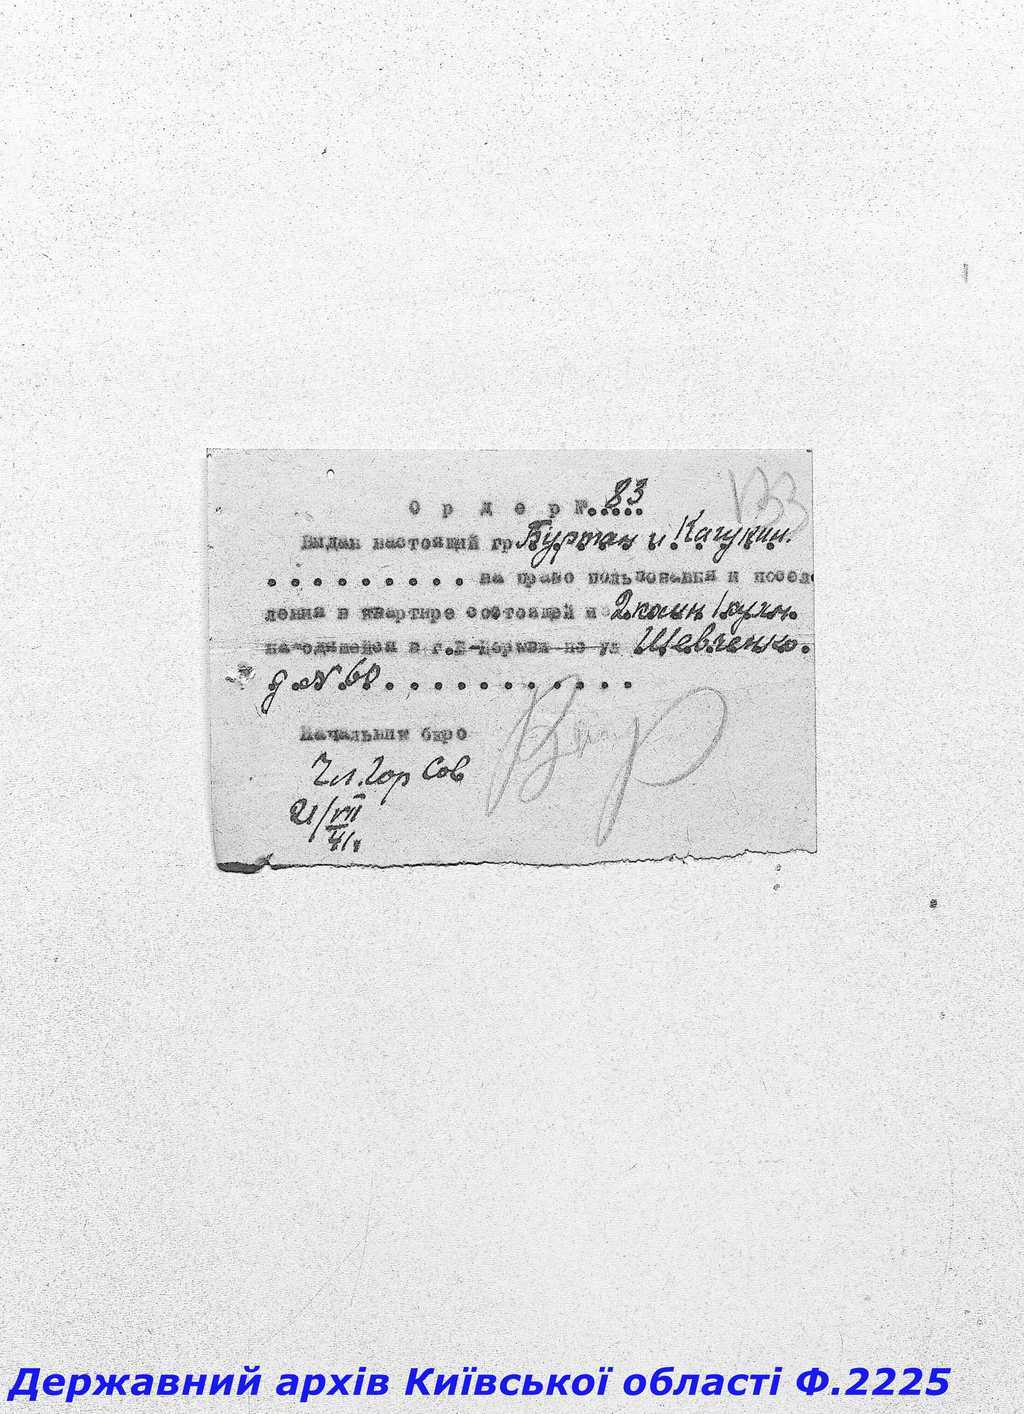 133
О р д е р №. 83
Выдан настоящий гр. Буртан и Качукин.
. . . . . . . . . на право пользования и посел
ления в квартире состоящей из 2 комн 1 кухн.
находящейся в г.Б-Церкви по ул Шевченко.
д. № 60 . . . . . . . . . . .
Начальник бюро
Чл. Гор Сов
21/VII
41г
Державний архів Київської області Ф.2225